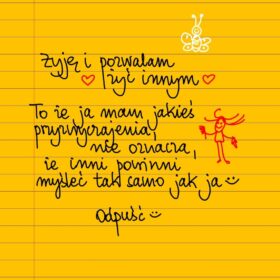 Żyję i pozwalam
żyć innym
To że ja mam jakieś
przyzwyczajenia,
nie oznacza,
że inni powinni
myśleć tak samo jak ja
Odpuść